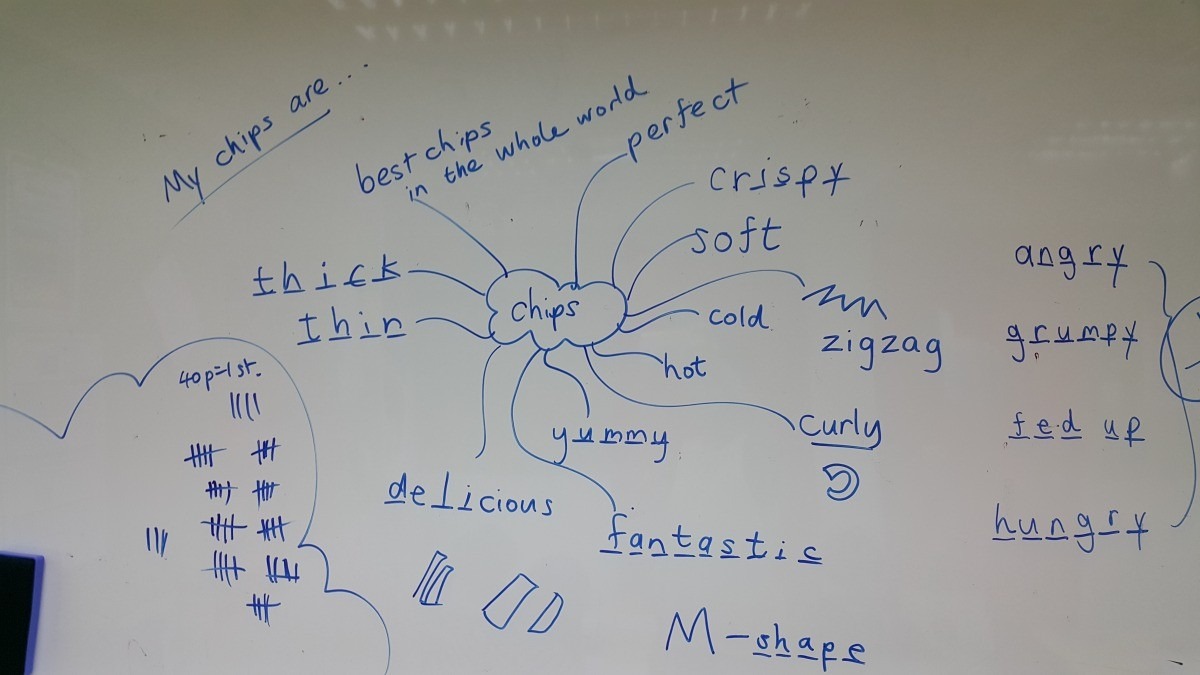 My chips are...
best chips
in the whole world
perfect
crispy
soft
thick
thin
chips
cold
zigzag
hot
curly
yummy
delicious
fantastic
M-shape
40p=1st.
angry
grumpy
fed up
hungry